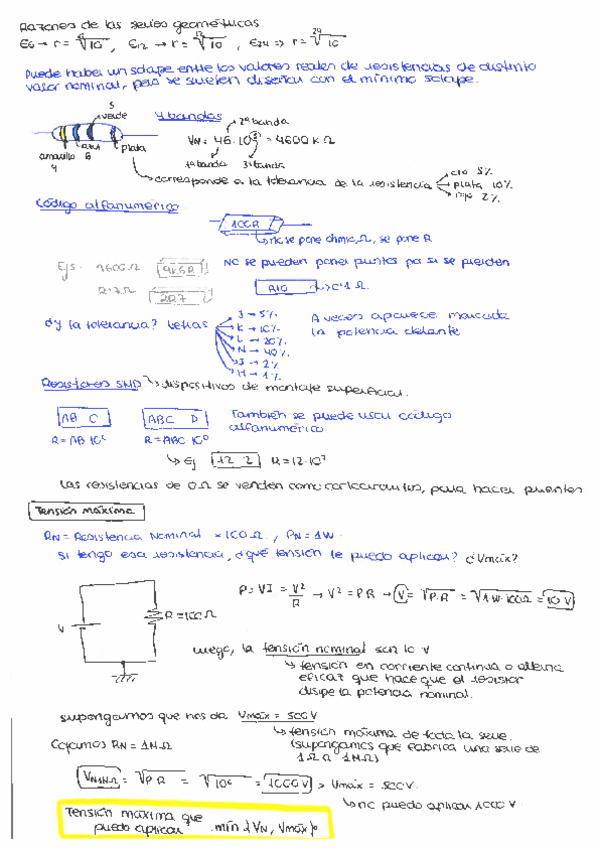 Razones de las series geométricas.
E6 → r = ⁶√10 , E12 → r = ¹²√10 , E24 => r = ²⁴√10
Puede haber un solape entre los valores reales de resistencias de distinto
valor nominal, pero se suelen diseñar con el mínimo solape.
5
verde
4 bandas
2ª banda
VN = 46·10⁵ = 4600 KΩ
amarillo
4
azul
6
plata
1ª banda 3ª banda
corresponde a la tolerancia de la resistencia
oro 5%
plata 10%
rojo 2%
Código alfanumérico
100R
no se pone ohmio, Ω, se pone R
Ejs. 4600Ω 4K6R
No se pueden poner puntos por si se pierden
2'7Ω 2R7
R10 → 0'1 Ω
¿Y la tolerancia? Letras
J → 5%
K → 10%
L → 20%
N → 40%
J → 2%
H → 1%
A veces aparece marcada
la potencia delante
Resistores SMD → dispositivos de montaje superficial.
AB C
ABC D
También se puede usar código
alfanumérico
R = AB·10ᶜ R = ABC·10ᴰ
Ej 12 2 R = 12·10²
Las resistencias de 0Ω se venden como cortocircuitos, para hacer puentes
Tensión máxima
RN = Resistencia Nominal = 100Ω , PN = 1W
Si tengo esa resistencia, ¿qué tensión le puedo aplicar? ¿Vmáx?
V
R = 100Ω
P = VI = V²/R → V² = PR → V = √P·R = √1W·100Ω = 10 V
Luego, la tensión nominal son 10 V
tensión en corriente continua o alterna
eficaz que hace que el resistor
disipe la potencia nominal.
Supongamos que nos da Vmáx = 500V
tensión máxima de toda la serie.
(supongamos que fabrica una serie de
1Ω a 1MΩ)
Cojamos RN = 1MΩ
VN1MΩ = √P R = √10⁶ = 1000V > Vmáx = 500V.
no puedo aplicar 1000 V
Tensión máxima que
puedo aplicar mín{VN, Vmáx}